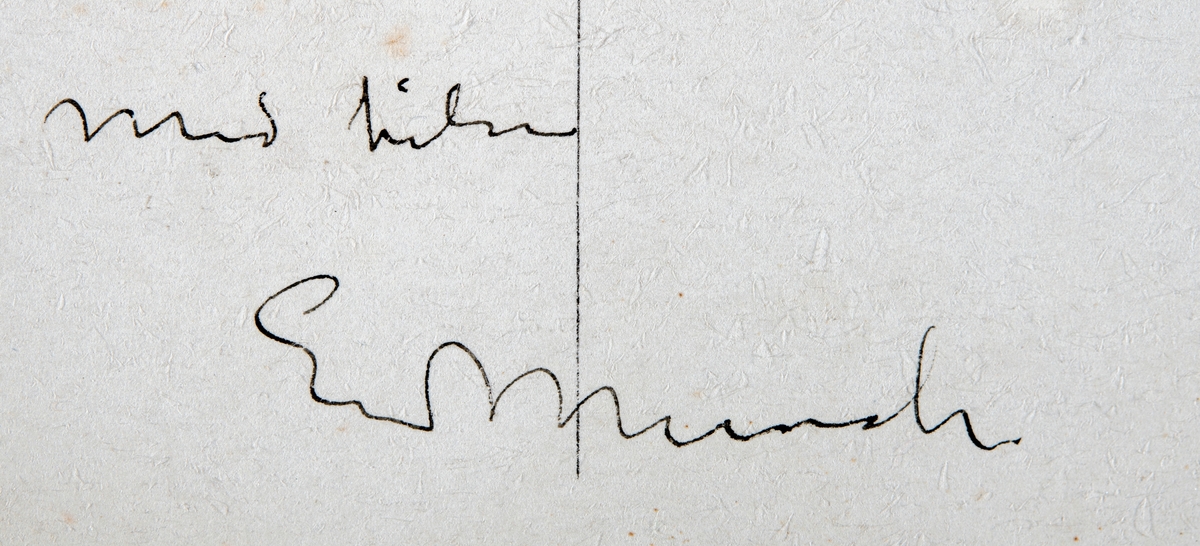 med hilsen
E Munch